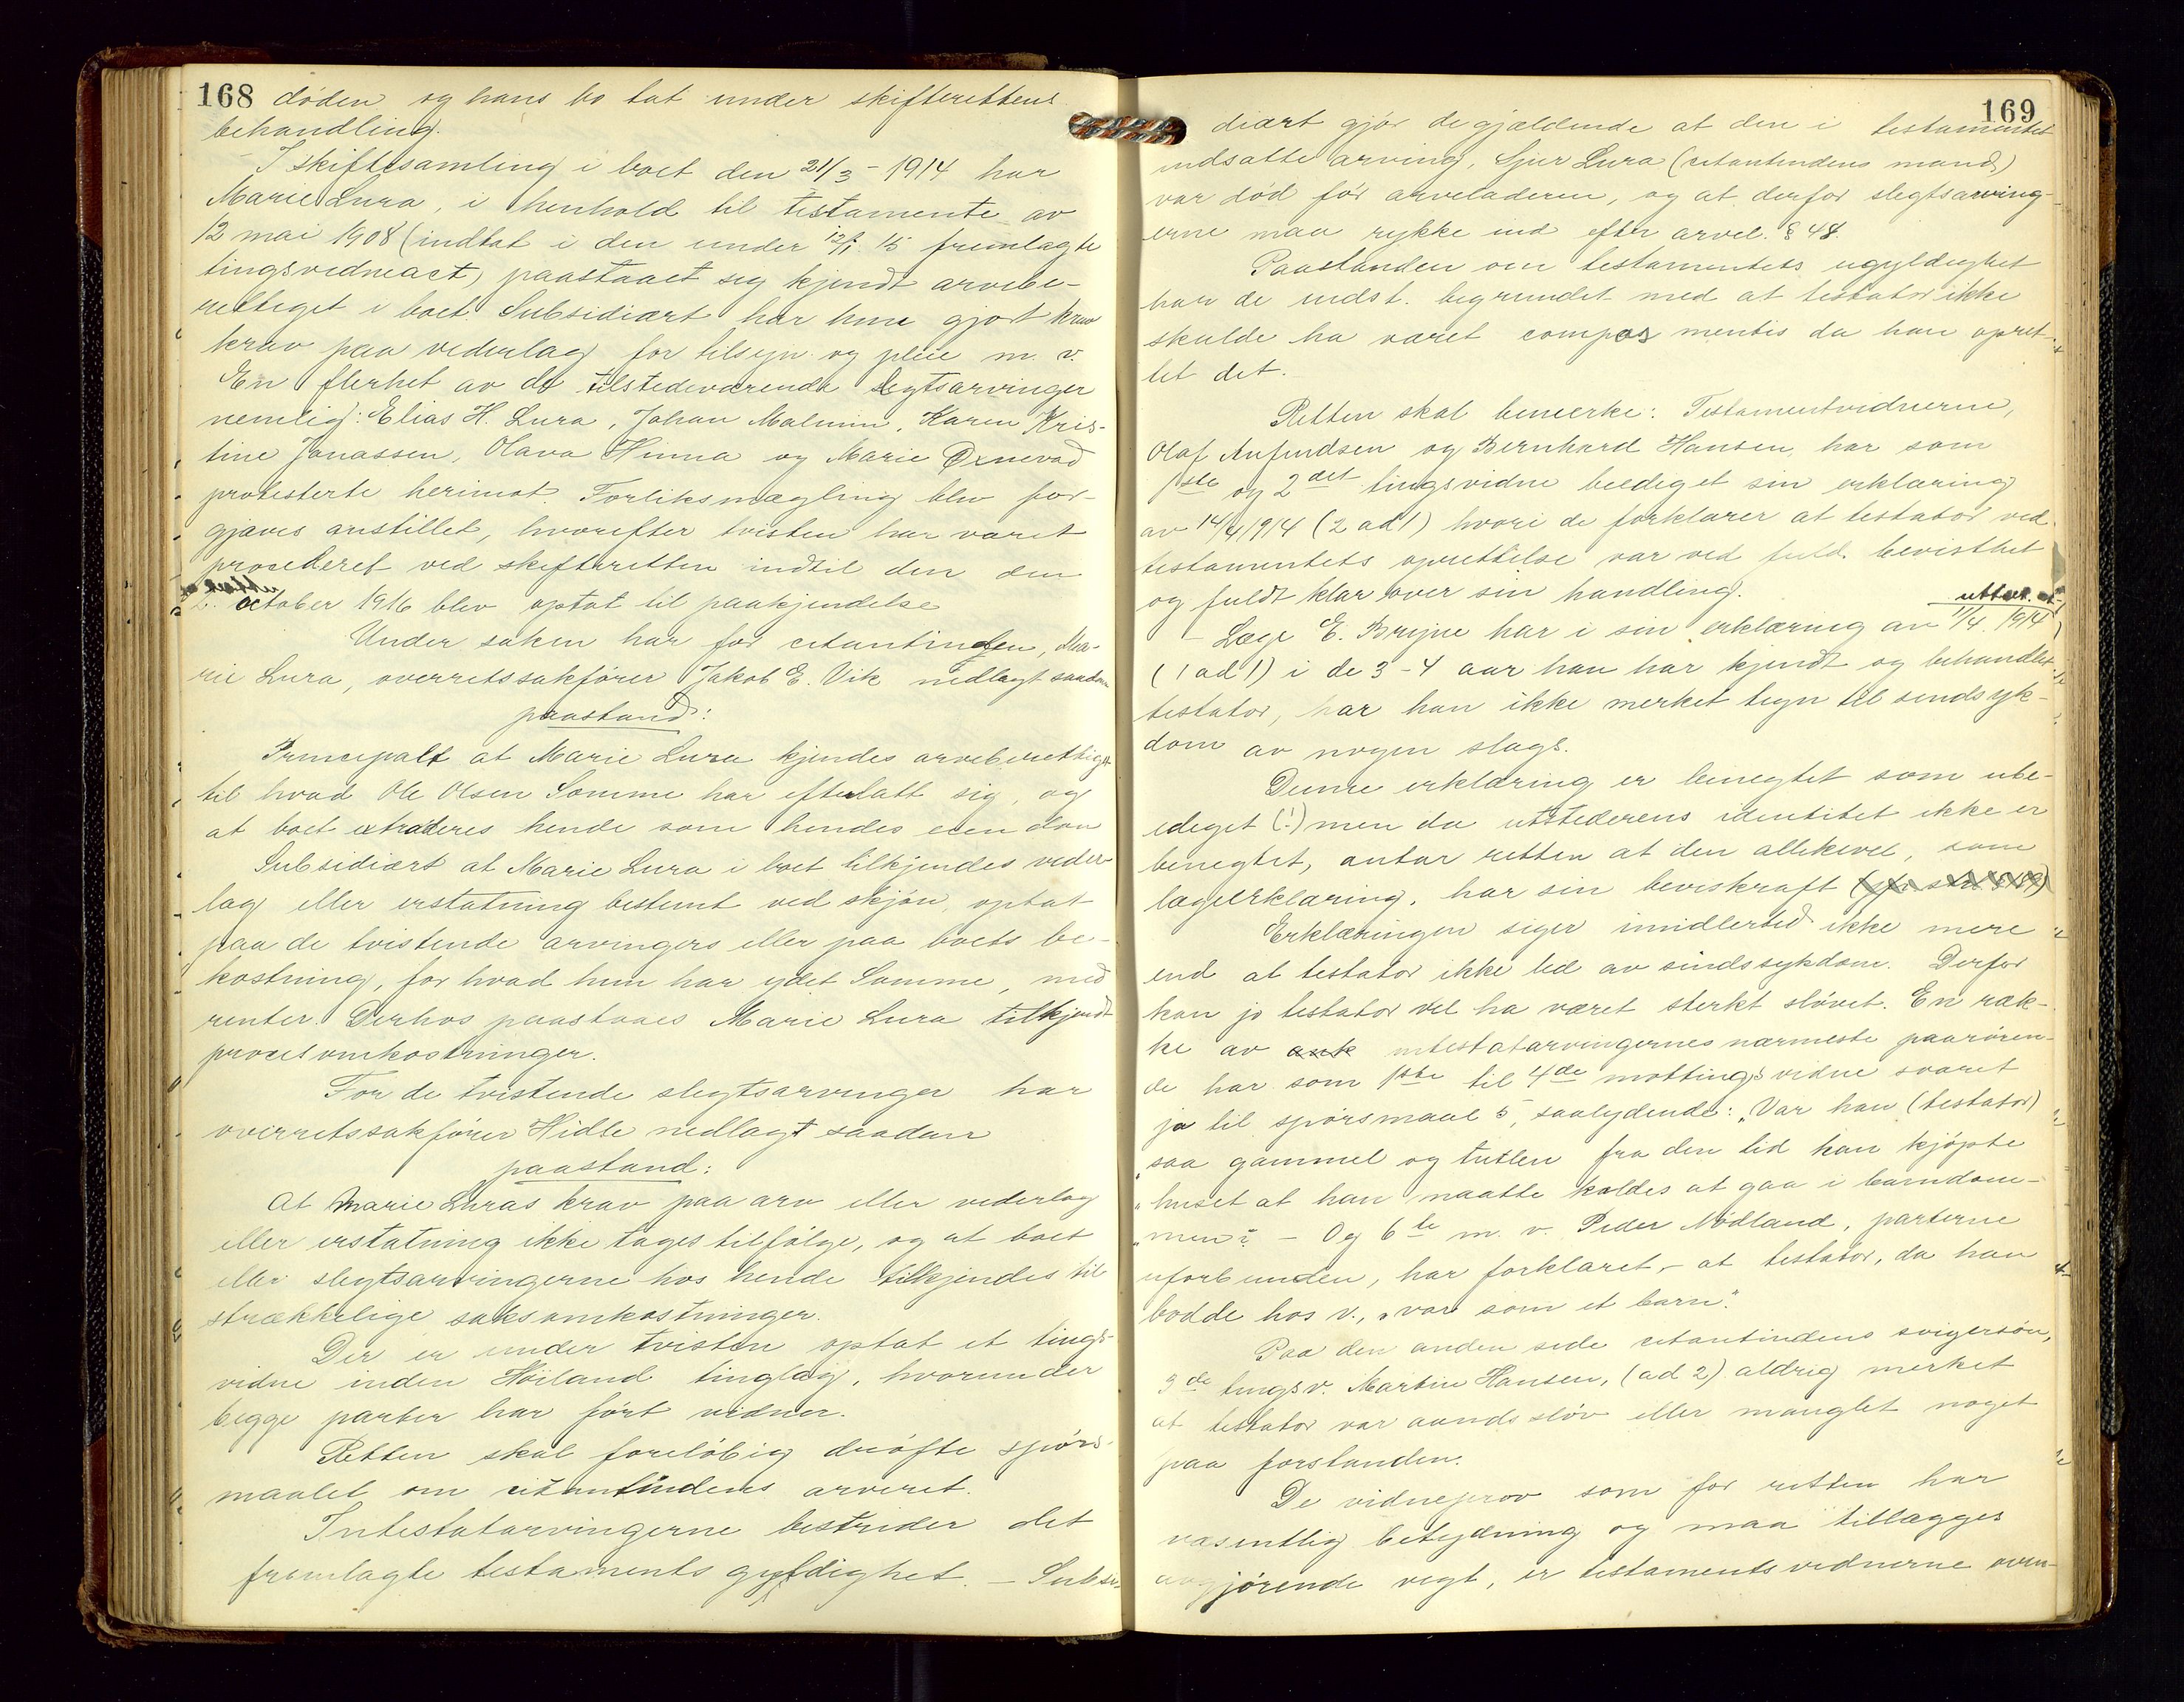 168 döden og hans bo tat under skifterettens
behandling.
I skiftesamling i boet den 21/3 - 1914 har
Marie Lura, i henhold til testamente av
12 mai 1908 (indtat i den under 12/1. 15 fremlagte
tingsvidneact) paastaaet sig kjendt arvebe-
rettiget i boet. Subsidiært har hun gjort krav
krav paa vederlag for tilsyn og pleie m. v.
En flerhet av de tilstedeværende slegtsarvinger
nemlig: Elias H. Lura, Johan Malmin, Karen Kris-
tine Jonassen, Olava Hinna og Marie
protesterte herimot. Forliksmægling blev for-
gjæves anstillet, hvorefter tvisten har været
procederet ved skifteretten indtil den den
2. october 1916 blev optat til paakjendelse
Under saken har for citantinden, Ma-
rie Lura, overretssakförer Jakob E. Vik nedlagt saadan
paastand:
Principalt at Marie Lura kjendes arveberettiget
til hvad Ole Olsen Somme har efterlatt sig, og
at boet extraderes hende som hendes eiendom
Subsidiært at Marie Lura i boet tilkjendes veder-
lag eller erstatning bestemt ved skjön, optat
paa de tvistende arvingers eller paa boets be-
kostning, for hvad hun har ydet Somme, med
renter. Derhos paastaaes Marie Lura tilkjendt
procesomkostninger.
For de tvistende slegtsarvinger har
overretssakförer Hidle nedlagt saadan
paastand:
At Marie Luras krav paa arv eller vederlag
eller erstatning ikke tages tilfölge, og at boet
eller slegtsarvingerne hos hende tilkjendes til
strækkelige saksomkostninger.
Der er under tvisten optat et tings-
vidne inden Höiland tinglag, hvorunder
begge parter har fört vidner.
Retten skal forelöbig dröfte spörs-
maalet om citantindens arveret.
Intestatarvingerne bestrider det
fremlagte testaments gyldighet. - Subsi-
169
diært gjör de gjældende at den i testamentet
indsatte arving, Sjur Lura (citantindens mand)
var död för arveladeren, og at derfor slegtsarving-
erne maa rykke ind efter arvel. § 48.
Paastanden om testamentets ugyldighet
har de indst. begrundet med at testator ikke
skulde ha været compos mentis da han opret-
tet det.
Retten skal bemerke: Testamentvidnerne,
Olaf Anfindsen og Bernhard Hansen, har som
1ste og 2det tingsvidne beediget sin erklæring
av 14/4 1914 (2 ad 1) hvori de forklarer at testator ved
testamentets oprettelse var ved fuld bevisthet
og fuldt klar over sin handling.
uttalt at
- Læge E. Bryne har i sin erklæring av 11/4. 1914
(1 ad 1) i de 3 - 4 aar han har kjendt og behandlet
testator, har han ikke merket tegn til sindsyk-
dom av nogen slags.
Denne erklæring er benegtet som ube-
ediget (!) men da utstederens identitet ikke er
benegtet, antar retten at den allikevel, som
lægeerklæring, har sin beviskraft
Erklæringen siger imidlertid ikke mere
end at testator ikke led av sindssykdom. Derfor
kan jo testator vel ha været sterkt slövet. En ræk-
ke av ank intestatarvingernes nærmeste paarören-
de har som 1ste til 4de mottingsvidne svaret
ja til spörsmaal 5, saalydende: „Var han (testator)
„saa gammel og tullen fra den tid han kjöpte
„huset at han maatte kaldes at gaa i barndom-
„men? - Og 6te m. v. Peder Nödland, parterne
uforbunden, har forklaret, at testator, da han
bodde hos v., „var som et barn."
Paa den anden side citantindens svigersön,
3de tingsv. Martin Hansen, (ad 2) aldrig merket
at testator var aandsslöv eller manglet noget
paa forstanden.
De vidneprov som for retten har
væsentlig betydning og maa tillægges
avgjörende vegt, er testamentsvidnerne oven-